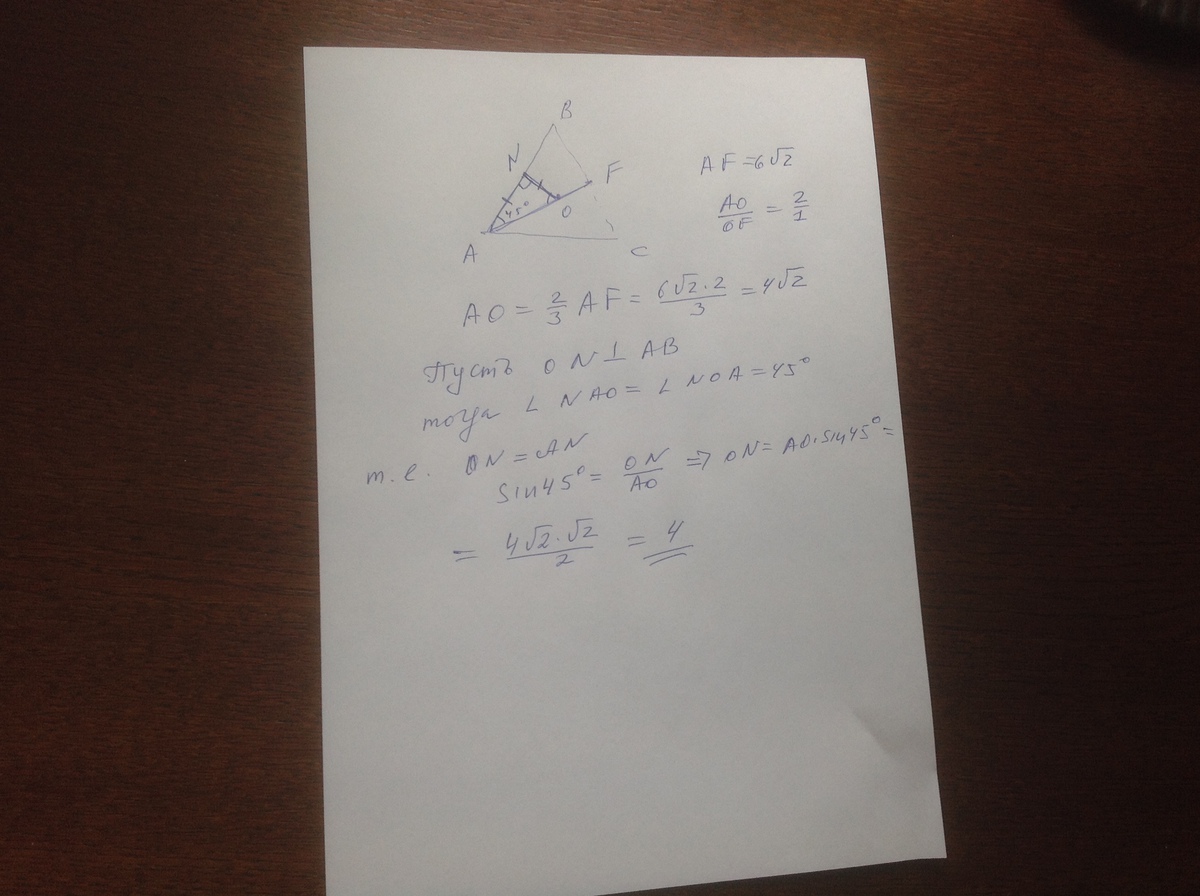 B
N
F
45°
O
A
C
AF = 6√2
AO/OF = 2/1
AO = 2/3 AF = 6√2·2/3 = 4√2
Пусть ON ⊥ AB
тогда ∠ NAO = ∠ NOA = 45°
т.е. ON = AN
sin45° = ON/AO ⇒ ON = AO·sin45° =
= 4√2·√2/2 = 4